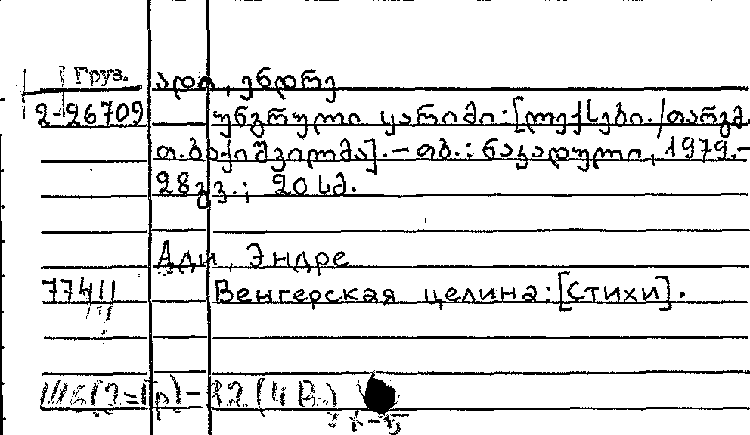 Груз. ადი, ენდრე
2-26709 უნგრული ყარიმი: [ლექსები. / თარგმ.
თ. ბაქიშვილმა]. – თბ.: ნაკადული, 1979. –
28 გვ.; 20 სმ.
Ади, Эндре
77411 Венгерская целина: [Стихи].